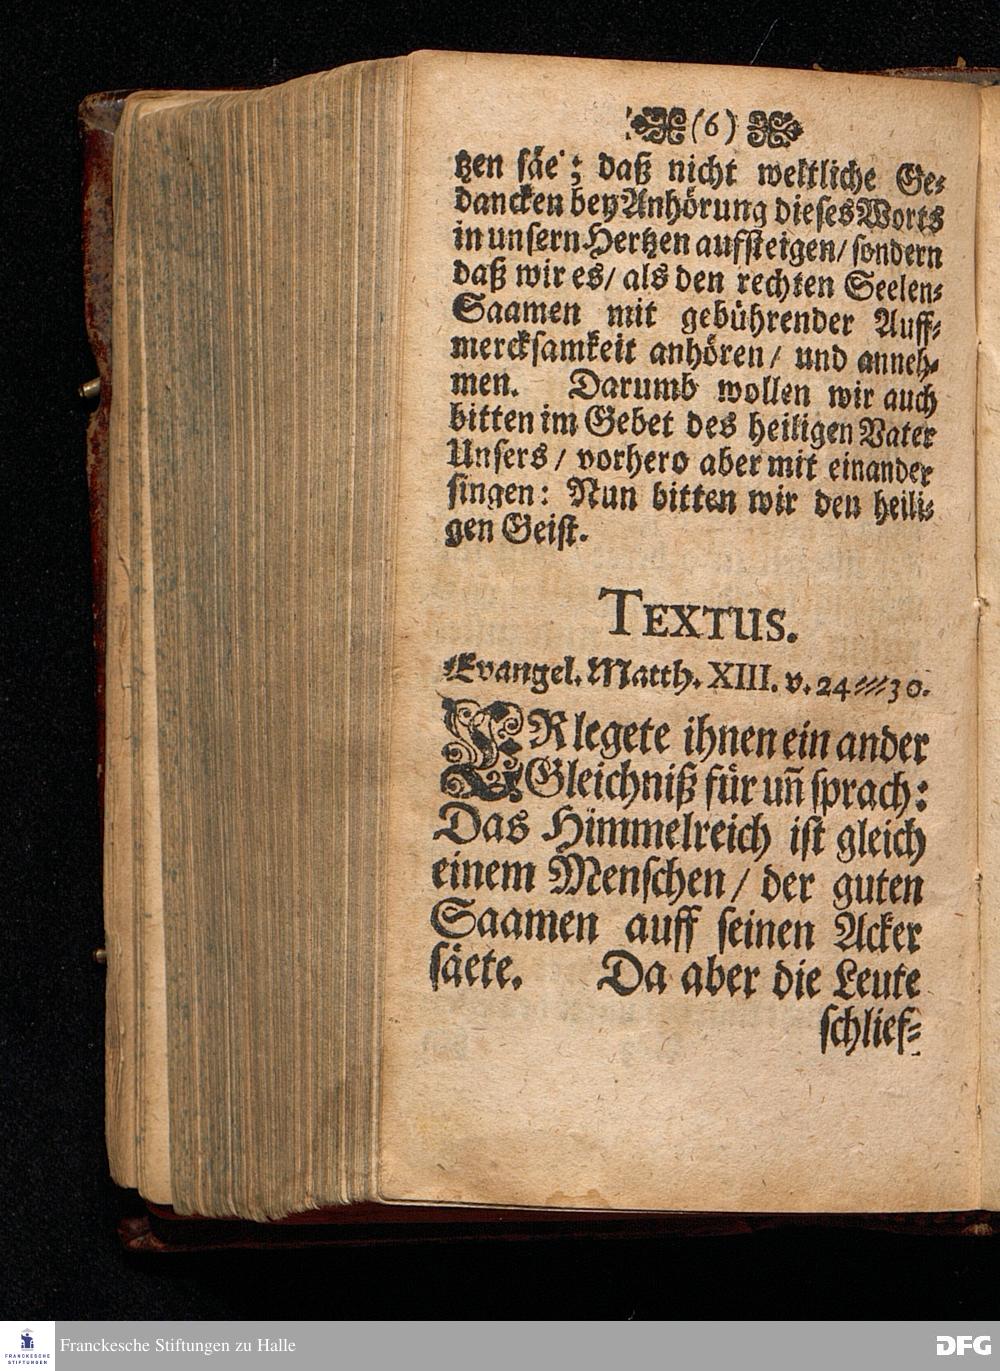 (6)
tzen säe; daß nicht weltliche Ge-
dancken bey Anhörung dieses Worts
in unsern Hertzen auffsteigen/ sondern
daß wir es/ als den rechten Seelen-
Saamen mit gebührender Auff-
mercksamkeit anhören/ und anneh-
men. Darumb wollen wir auch
bitten im Gebet des heiligen Vater
Unsers/ vorhero aber mit einander
singen: Nun bitten wir den heili-
gen Geist.
TEXTUS.
Evangel. Matth. XIII. v. 24---30.
ER legete ihnen ein ander
Gleichniß für uñ sprach:
Das Himmelreich ist gleich
einem Menschen/ der guten
Saamen auff seinen Acker
säete. Da aber die Leute
schlief-
FRANCKESCHE
STIFTUNGEN
Franckesche Stiftungen zu Halle
DFG